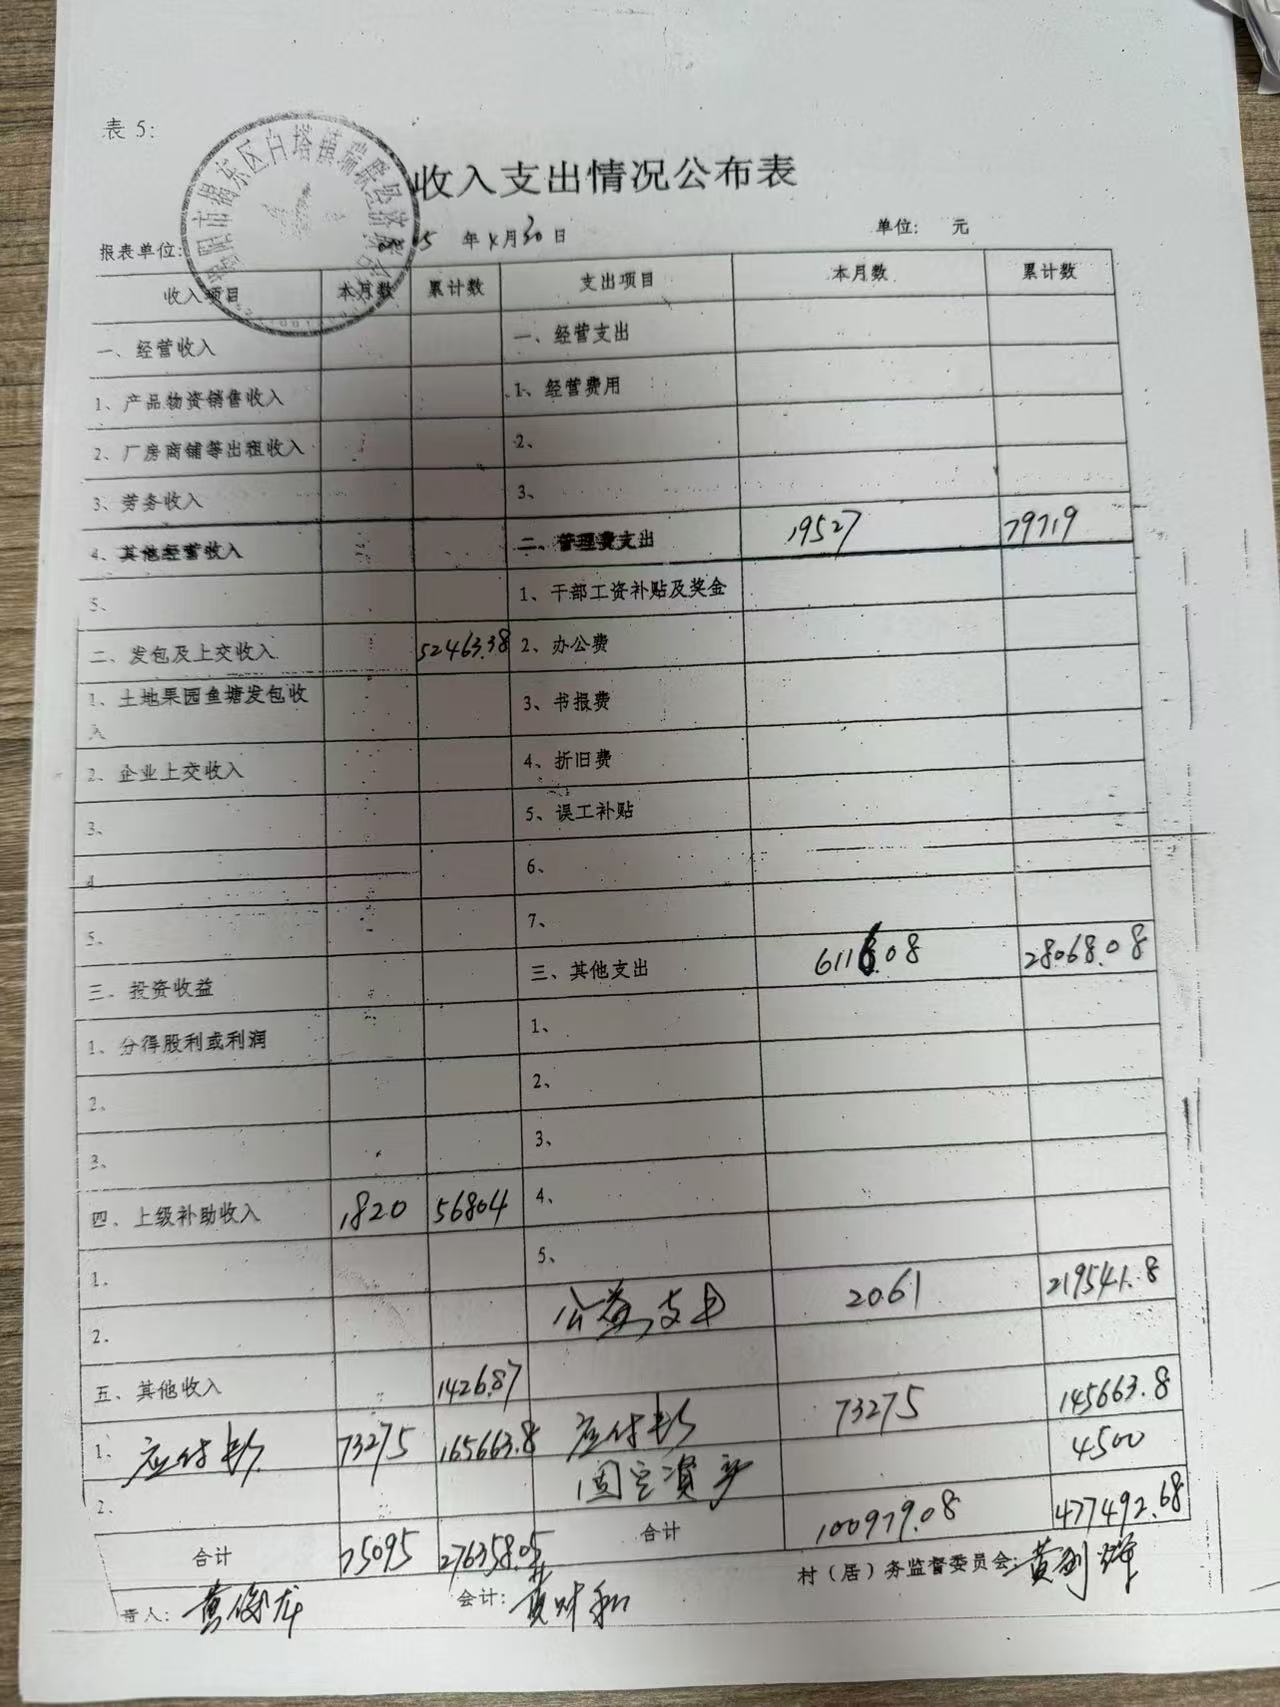 表 5:
收入支出情况公布表
报表单位: 5 年 4 月 30 日 单位: 元
收入项目 本月数 累计数 支出项目 本月数 累计数
一、经营收入 一、经营支出
1、产品物资销售收入 1、经营费用
2、厂房商铺等出租收入 2、
3、劳务收入 3、
4、其他经营收入 二、管理费支出 19527 79719
5、 1、干部工资补贴及奖金
二、发包及上交收入 52463.38 2、办公费
1、土地果园鱼塘发包收 3、书报费
入
2、企业上交收入 4、折旧费
3、 5、误工补贴
4 6、
5、 7、
三、投资收益 三、其他支出 6116.08 28068.08
1、分得股利或利润 1、
2、 2、
3、 3、
四、上级补助收入 1820 56804 4、
1、 5、
2、 公益支出 2061 219541.8
五、其他收入 1426.87
1、应付款 73275 165663.8 应付款 73275 145663.8
2、 固定资产 4500
合计 75095 276358.05 合计 100979.08 477492.68
责人: 黄俊龙 会计: 黄财和 村（居）务监督委员会: 黄剑辉